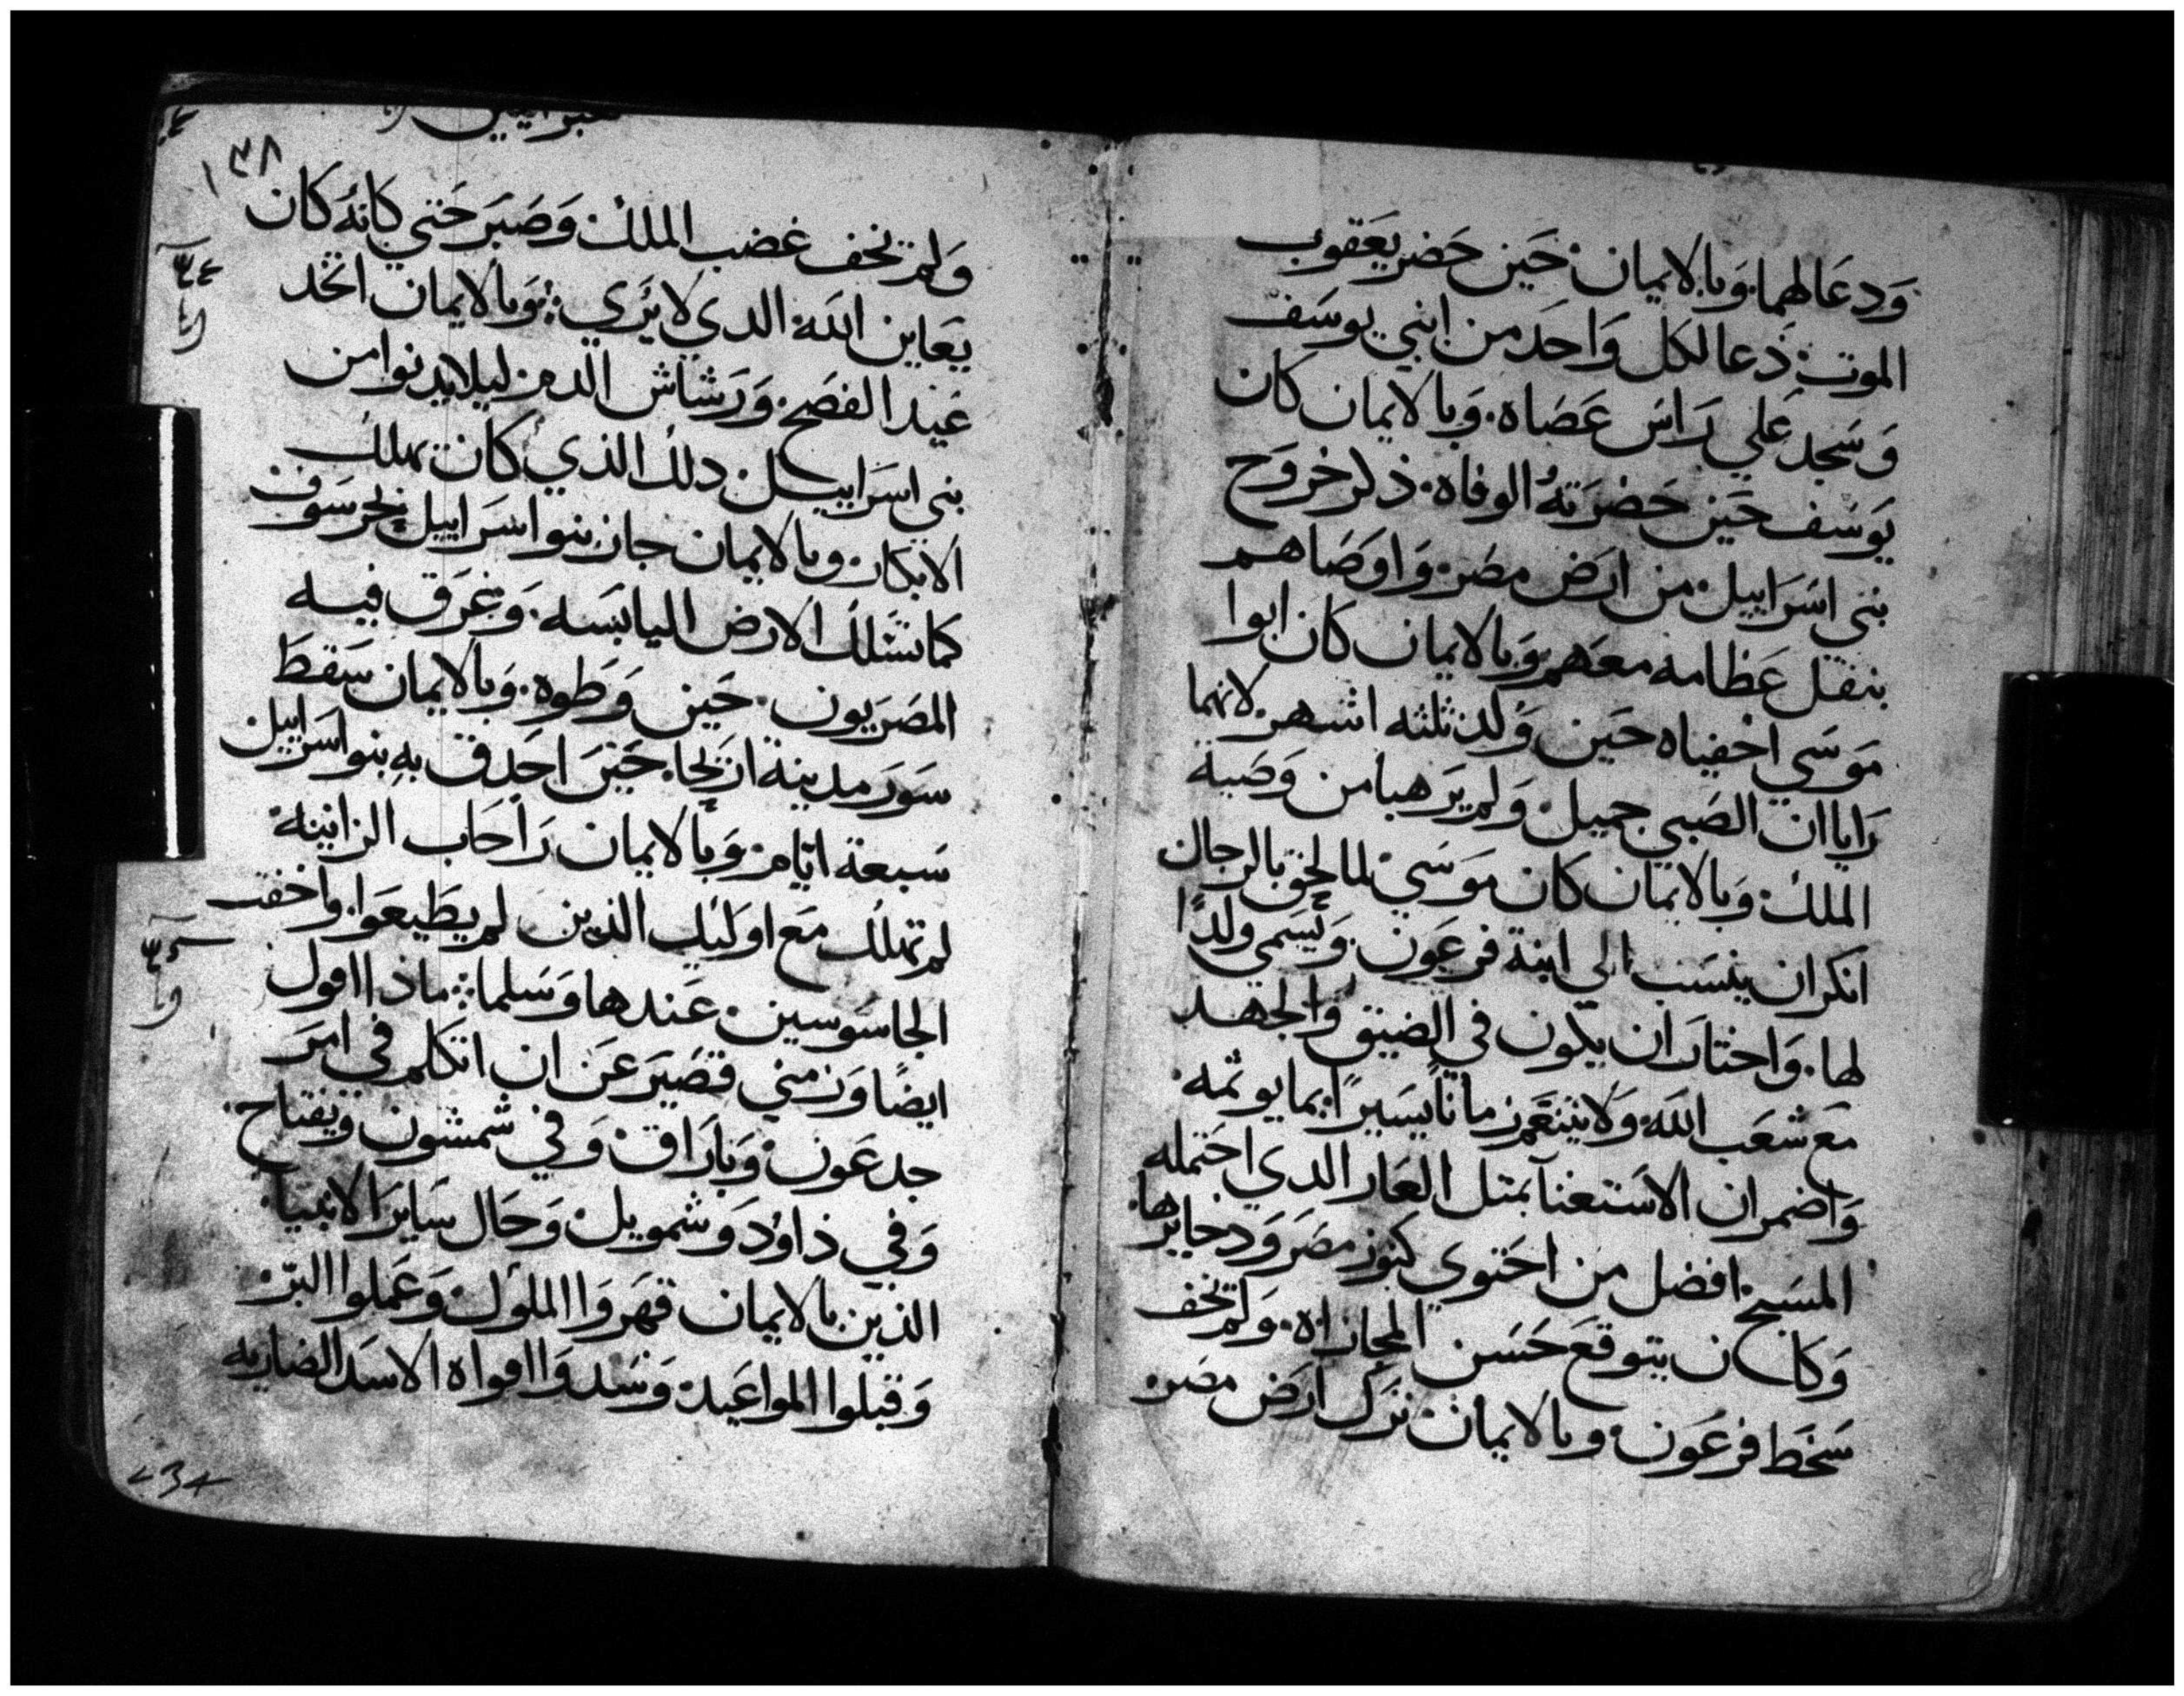 ودعا لهما. وبالايمان حين حضر يعقوب
الموت دعا لكل واحد من ابني يوسف
وسجد علي راس عصاه. وبالايمان كان
يوسف حين حضرته الوفاه. ذكر خروج
بني اسراييل من ارض مصر. واوصاهم
بنقل عظامه معهم وبالايمان كان ابوا
موسي اخفياه حين ولد ثلثه اشهر لانهما
رايا ان الصبي جميل ولم يرهبا من وصية
الملك وبالايمان كان موسي لما لحق بالرجال
انكر ان ينسب الي ابنة فرعون. ويسمي ولدًا
لها. واختار ان يكون في الضيق والجهد
مع شعب الله ولا يتنعم زمانًا يسيرًا بما يوثمه
واضمر ان الاستغنا بمثل العار الدي احتمله
المسيح افضل من احتوي كنوز مصر ودخايرها.
وكان يتوقع حسن المجازاه. ولم يخف
سخط فرعون وبالايمان ترك ارض مصر
١٣٨
ولم يخف غضب الملك وصبر حتي كانه كان
يعاين الله الدي لا يري وبالايمان اتخد
عيد الفصح. ورشاش الدم ليلا يدنوا من
بني اسراييل دلك الذي كان يهلك
الابكار وبالايمان جاز بنو اسراييل بحر سوف
كما تسلك الارض اليابسه. وغرق فيه
المصريون. حين وطوه. وبالايمان سقط
سور مدينة اريحا. حين احدق به بنو اسراييل
سبعة ايام وبالايمان راحاب الزانية
لم تهلك مع اوليك الذين لم يطيعوا. واخفت
الجاسوسين عندها وسلما ماذا اقول
ايضًا وزمني قصير عن ان اتكلم في امر
جدعون وباراق وفي شمشون ويفتاح.
وفي داوود وشمويل وحال ساير الانبيا
الذين بالايمان قهروا الملوك وعملوا البر
وقبلوا المواعيد وسدوا افواه الاسد الضاريه